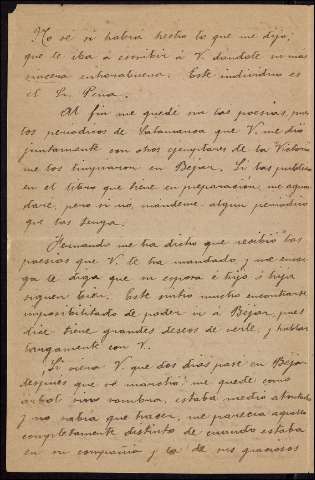 No sé si habrá hecho lo que me dijo,
que le iba á escribir á V. dandole su más
sincera enhorabuena. Este individuo es
el Sr. Peña.
Al fin me quedé sin las poesías, pues
los periodicos de Salamanca que V. me dió
juntamente con otros ejemplares de la Victoria
me los limpiaron en Béjar. Si las publica
en el libro que tiene en preparación, me aguan
daré, pero si no, mandeme algun periodico
que las tenga.
Fernando me ha dicho que recibió las
poesias que V. le ha mandado, y me encar
ga le diga que su esposa é hijo ó hija
siguen bien. Este sintio mucho encontrarse
imposibilitado de poder ir á Béjar, pues
dice tiene grandes deseos de verle, y hablar
largamente con V.
¡Si viera V. que dos dias pasé en Béjar
despues que se marchó! me quedé como
árbol sin sombra, estaba medio atontado
y no sabia que hacer, me parecia aquello
completamente distinto de cuando estaba
en su compañia y la de sus graciosos